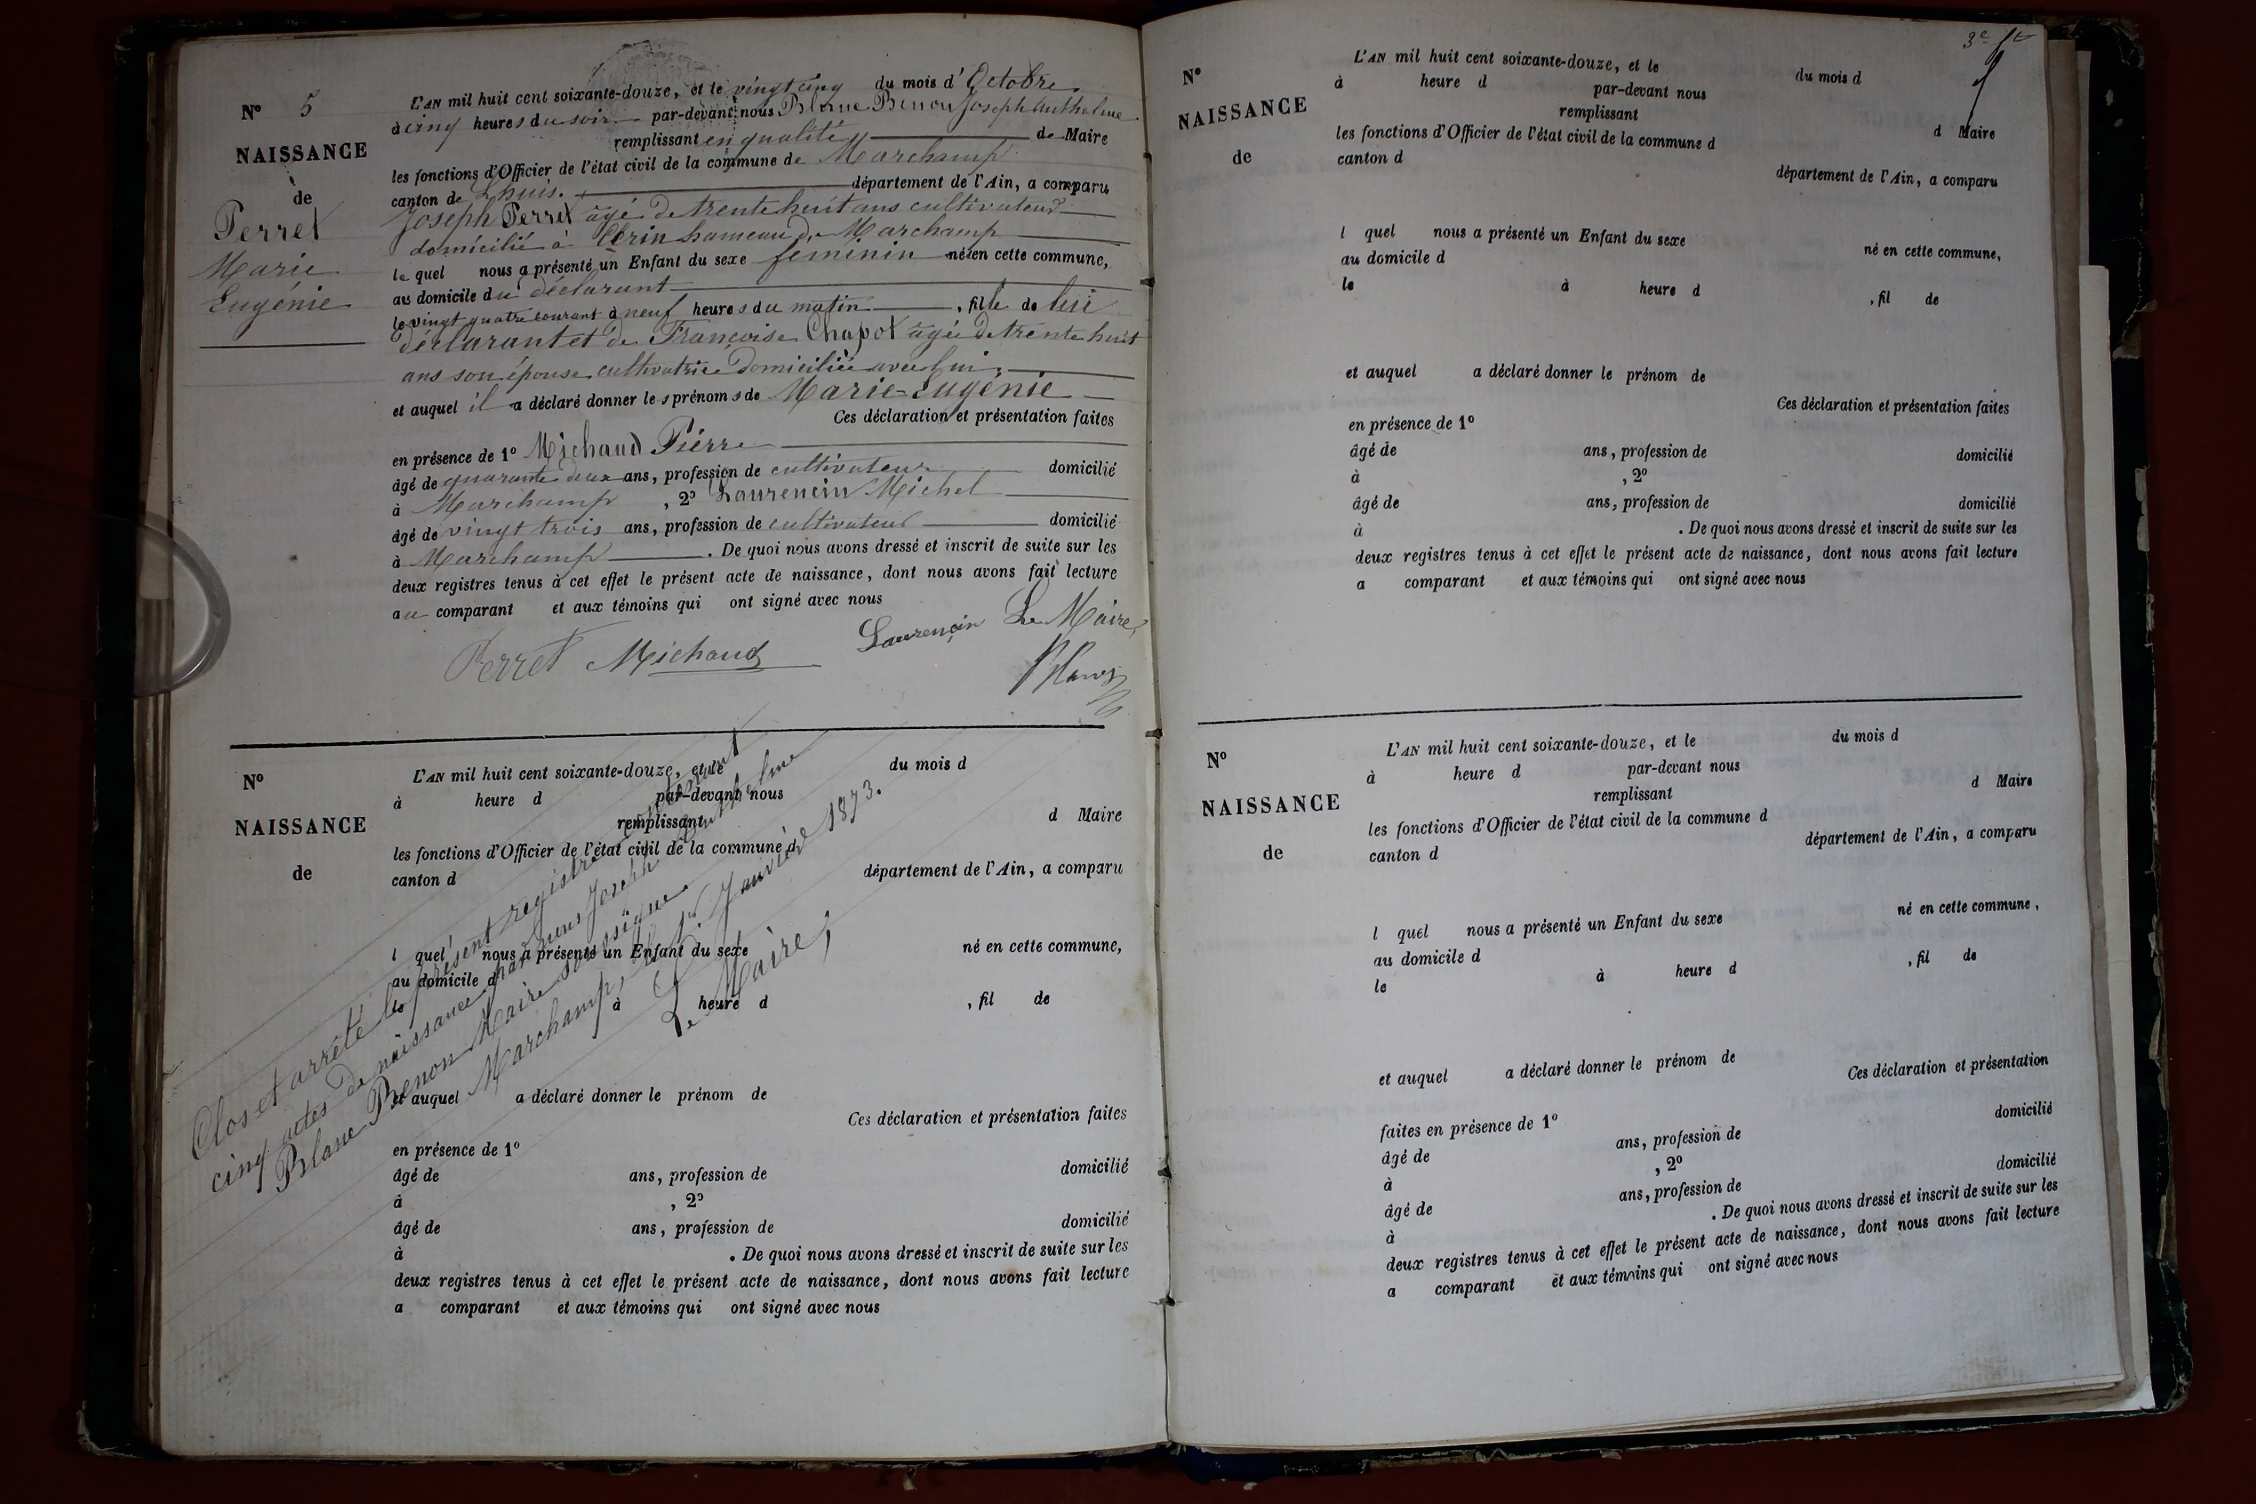 N° 5
NAISSANCE
de
Perret
Marie
Eugénie
L'AN mil huit cent soixante-douze, et le vingt cinq du mois d'Octobre
à cinq heures du soir par-devant nous Blanc Benon Joseph Anthelme
remplissant en qualité de Maire
les fonctions d'Officier de l'état civil de la commune de Marchamp
canton de Lhuis. département de l'Ain, a comparu
Joseph Perret âgé de trente huit ans cultivateur
domicilié à Cerin hameau de Marchamp
le quel nous a présenté un Enfant du sexe féminin né en cette commune,
au domicile du déclarant
le vingt quatre courant à neuf heures du matin , fille de lui
déclarant et de Françoise Chapot âgée de trente huit
ans son épouse cultivatrice domiciliée avec lui;
et auquel il a déclaré donner les prénoms de Marie-Eugénie
Ces déclaration et présentation faites
en présence de 1° Michaud Pierre
âgé de quarante deux ans, profession de cultivateur domicilié
à Marchamp , 2° Laurencin Michel
âgé de vingt trois ans, profession de cultivateur domicilié
à Marchamp . De quoi nous avons dressé et inscrit de suite sur les
deux registres tenus à cet effet le présent acte de naissance, dont nous avons fait lecture
au comparant et aux témoins qui ont signé avec nous
Perret Michaud Laurencin Le Maire,
Blanc
N°
NAISSANCE
de
L'AN mil huit cent soixante-douze, et le du mois d
à heure d par-devant nous
remplissant d Maire
les fonctions d'Officier de l'état civil de la commune d
canton d département de l'Ain, a comparu
l quel nous a présenté un Enfant du sexe né en cette commune,
au domicile d
le à heure d , fil de
et auquel a déclaré donner le prénom de
Ces déclaration et présentation faites
en présence de 1°
âgé de ans, profession de domicilié
à , 2°
âgé de ans, profession de domicilié
à . De quoi nous avons dressé et inscrit de suite sur les
deux registres tenus à cet effet le présent acte de naissance, dont nous avons fait lecture
a comparant et aux témoins qui ont signé avec nous
Clos et arrêté le présent registre
cinq actes de naissance par nous Joseph Anthelme
Blanc Benon Maire soussigné
Marchamp, le 1er Janvier 1873.
Le Maire,
3e ft
N°
NAISSANCE
de
L'AN mil huit cent soixante-douze, et le du mois d
à heure d par-devant nous
remplissant d Maire
les fonctions d'Officier de l'état civil de la commune d
canton d département de l'Ain, a comparu
l quel nous a présenté un Enfant du sexe né en cette commune,
au domicile d
le à heure d , fil de
et auquel a déclaré donner le prénom de
Ces déclaration et présentation faites
en présence de 1°
âgé de ans, profession de domicilié
à , 2°
âgé de ans, profession de domicilié
à . De quoi nous avons dressé et inscrit de suite sur les
deux registres tenus à cet effet le présent acte de naissance, dont nous avons fait lecture
a comparant et aux témoins qui ont signé avec nous
N°
NAISSANCE
de
L'AN mil huit cent soixante-douze, et le du mois d
à heure d par-devant nous
remplissant d Maire
les fonctions d'Officier de l'état civil de la commune d
canton d département de l'Ain, a comparu
l quel nous a présenté un Enfant du sexe né en cette commune,
au domicile d
le à heure d , fil de
et auquel a déclaré donner le prénom de
Ces déclaration et présentation
faites en présence de 1°
âgé de ans, profession de domicilié
à , 2°
âgé de ans, profession de domicilié
à . De quoi nous avons dressé et inscrit de suite sur les
deux registres tenus à cet effet le présent acte de naissance, dont nous avons fait lecture
a comparant et aux témoins qui ont signé avec nous